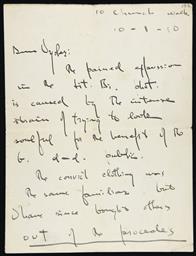 10 Church walk
10-8-50
Dear Vydes:
The pained expression
in the lit. Bs. dot.
is caused by the intense
strain of trying to look
soulful for the benefit of the
G. d—d. public.
The convict clothing was
the same familiar but
I have since bought others
out of the proceeds